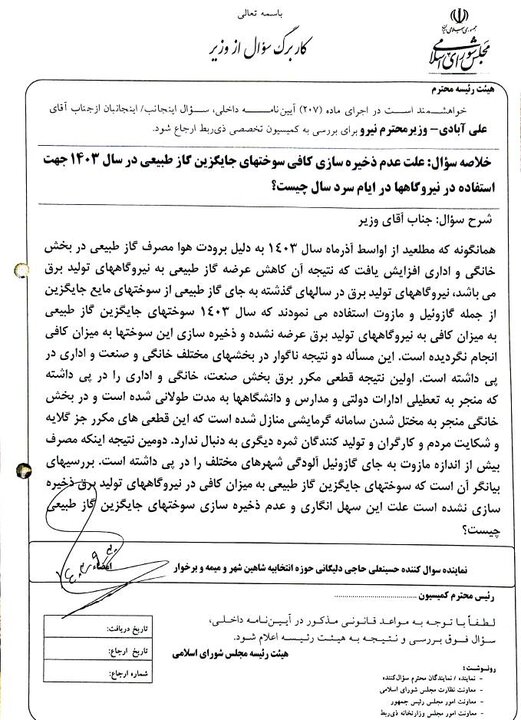 باسمه تعالی
کاربرگ سؤال از وزیر
جمهوری اسلامی ایران
مجلس شورای اسلامی
هیئت رئیسه محترم
خواهشمند است در اجرای ماده (۲۰۷) آیین‌نامه داخلی، سؤال اینجانب/ اینجانبان ازجناب آقای
علی آبادی- وزیرمحترم نیرو برای بررسی به کمیسیون تخصصی ذی‌ربط ارجاع شود.
خلاصه سؤال: علت عدم ذخیره سازی کافی سوختهای جایگزین گاز طبیعی در سال ۱۴۰۳ جهت
استفاده در نیروگاهها در ایام سرد سال چیست؟
شرح سؤال: جناب آقای وزیر
همانگونه که مطلعید از اواسط آذرماه سال ۱۴۰۳ به دلیل برودت هوا مصرف گاز طبیعی در بخش
خانگی و اداری افزایش یافت که نتیجه آن کاهش عرضه گاز طبیعی به نیروگاههای تولید برق
می باشد، نیروگاههای تولید برق در سالهای گذشته به جای گاز طبیعی از سوختهای مایع جایگزین
از جمله گازوئیل و مازوت استفاده می نمودند که سال ۱۴۰۳ سوختهای جایگزین گاز طبیعی
به میزان کافی به نیروگاههای تولید برق عرضه نشده و ذخیره سازی این سوختها به میزان کافی
انجام نگردیده است. این مسأله دو نتیجه ناگوار در بخشهای مختلف خانگی و صنعت و اداری در
پی داشته است. اولین نتیجه قطعی مکرر برق بخش صنعت، خانگی و اداری را در پی داشته
که منجر به تعطیلی ادارات دولتی و مدارس و دانشگاهها به مدت طولانی شده است و در بخش
خانگی منجر به مختل شدن سامانه گرمایشی منازل شده است که این قطعی های مکرر جز گلایه
و شکایت مردم و کارگران و تولید کنندگان ثمره دیگری به دنبال ندارد. دومین نتیجه اینکه مصرف
بیش از اندازه مازوت به جای گازوئیل آلودگی شهرهای مختلف را در پی داشته است. بررسیهای
بیانگر آن است که سوختهای جایگزین گاز طبیعی به میزان کافی در نیروگاههای تولید برق ذخیره
سازی نشده است علت این سهل انگاری و عدم ذخیره سازی سوختهای جایگزین گاز طبیعی
چیست؟
نماینده سوال کننده حسینعلی حاجی دلیگانی حوزه انتخابیه شاهین شهر و میمه و برخوار
امضاء
رئیس محترم کمیسیون ........................
لطفاً با توجه به مواعد قانونی مذکور در آیین‌نامه داخلی،
سؤال فوق بررسی و نتیجه به هیئت رئیسه اعلام شود.
هیئت رئیسه مجلس شورای اسلامی
تاریخ دریافت:
تاریخ ارجاع:
شماره ارجاع:
رونوشت:
- نماینده / نمایندگان محترم سؤال‌کننده
- معاونت نظارت مجلس شورای اسلامی
- معاونت امور مجلس رئیس جمهور
- معاونت امور مجلس وزارتخانه ذی‌ربط